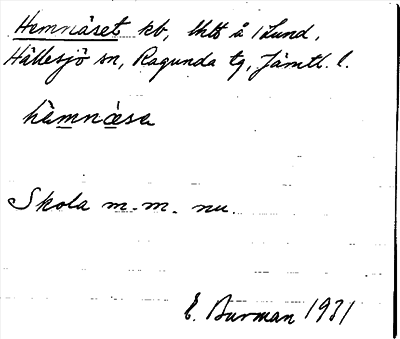 Hemnäset kb, lhtt å 1 Lund,
Hällesjö sn, Ragunda tg, Jämtl. l.
hèmnæ̀sa
Skola m.m. nu.
E. Burman 1931